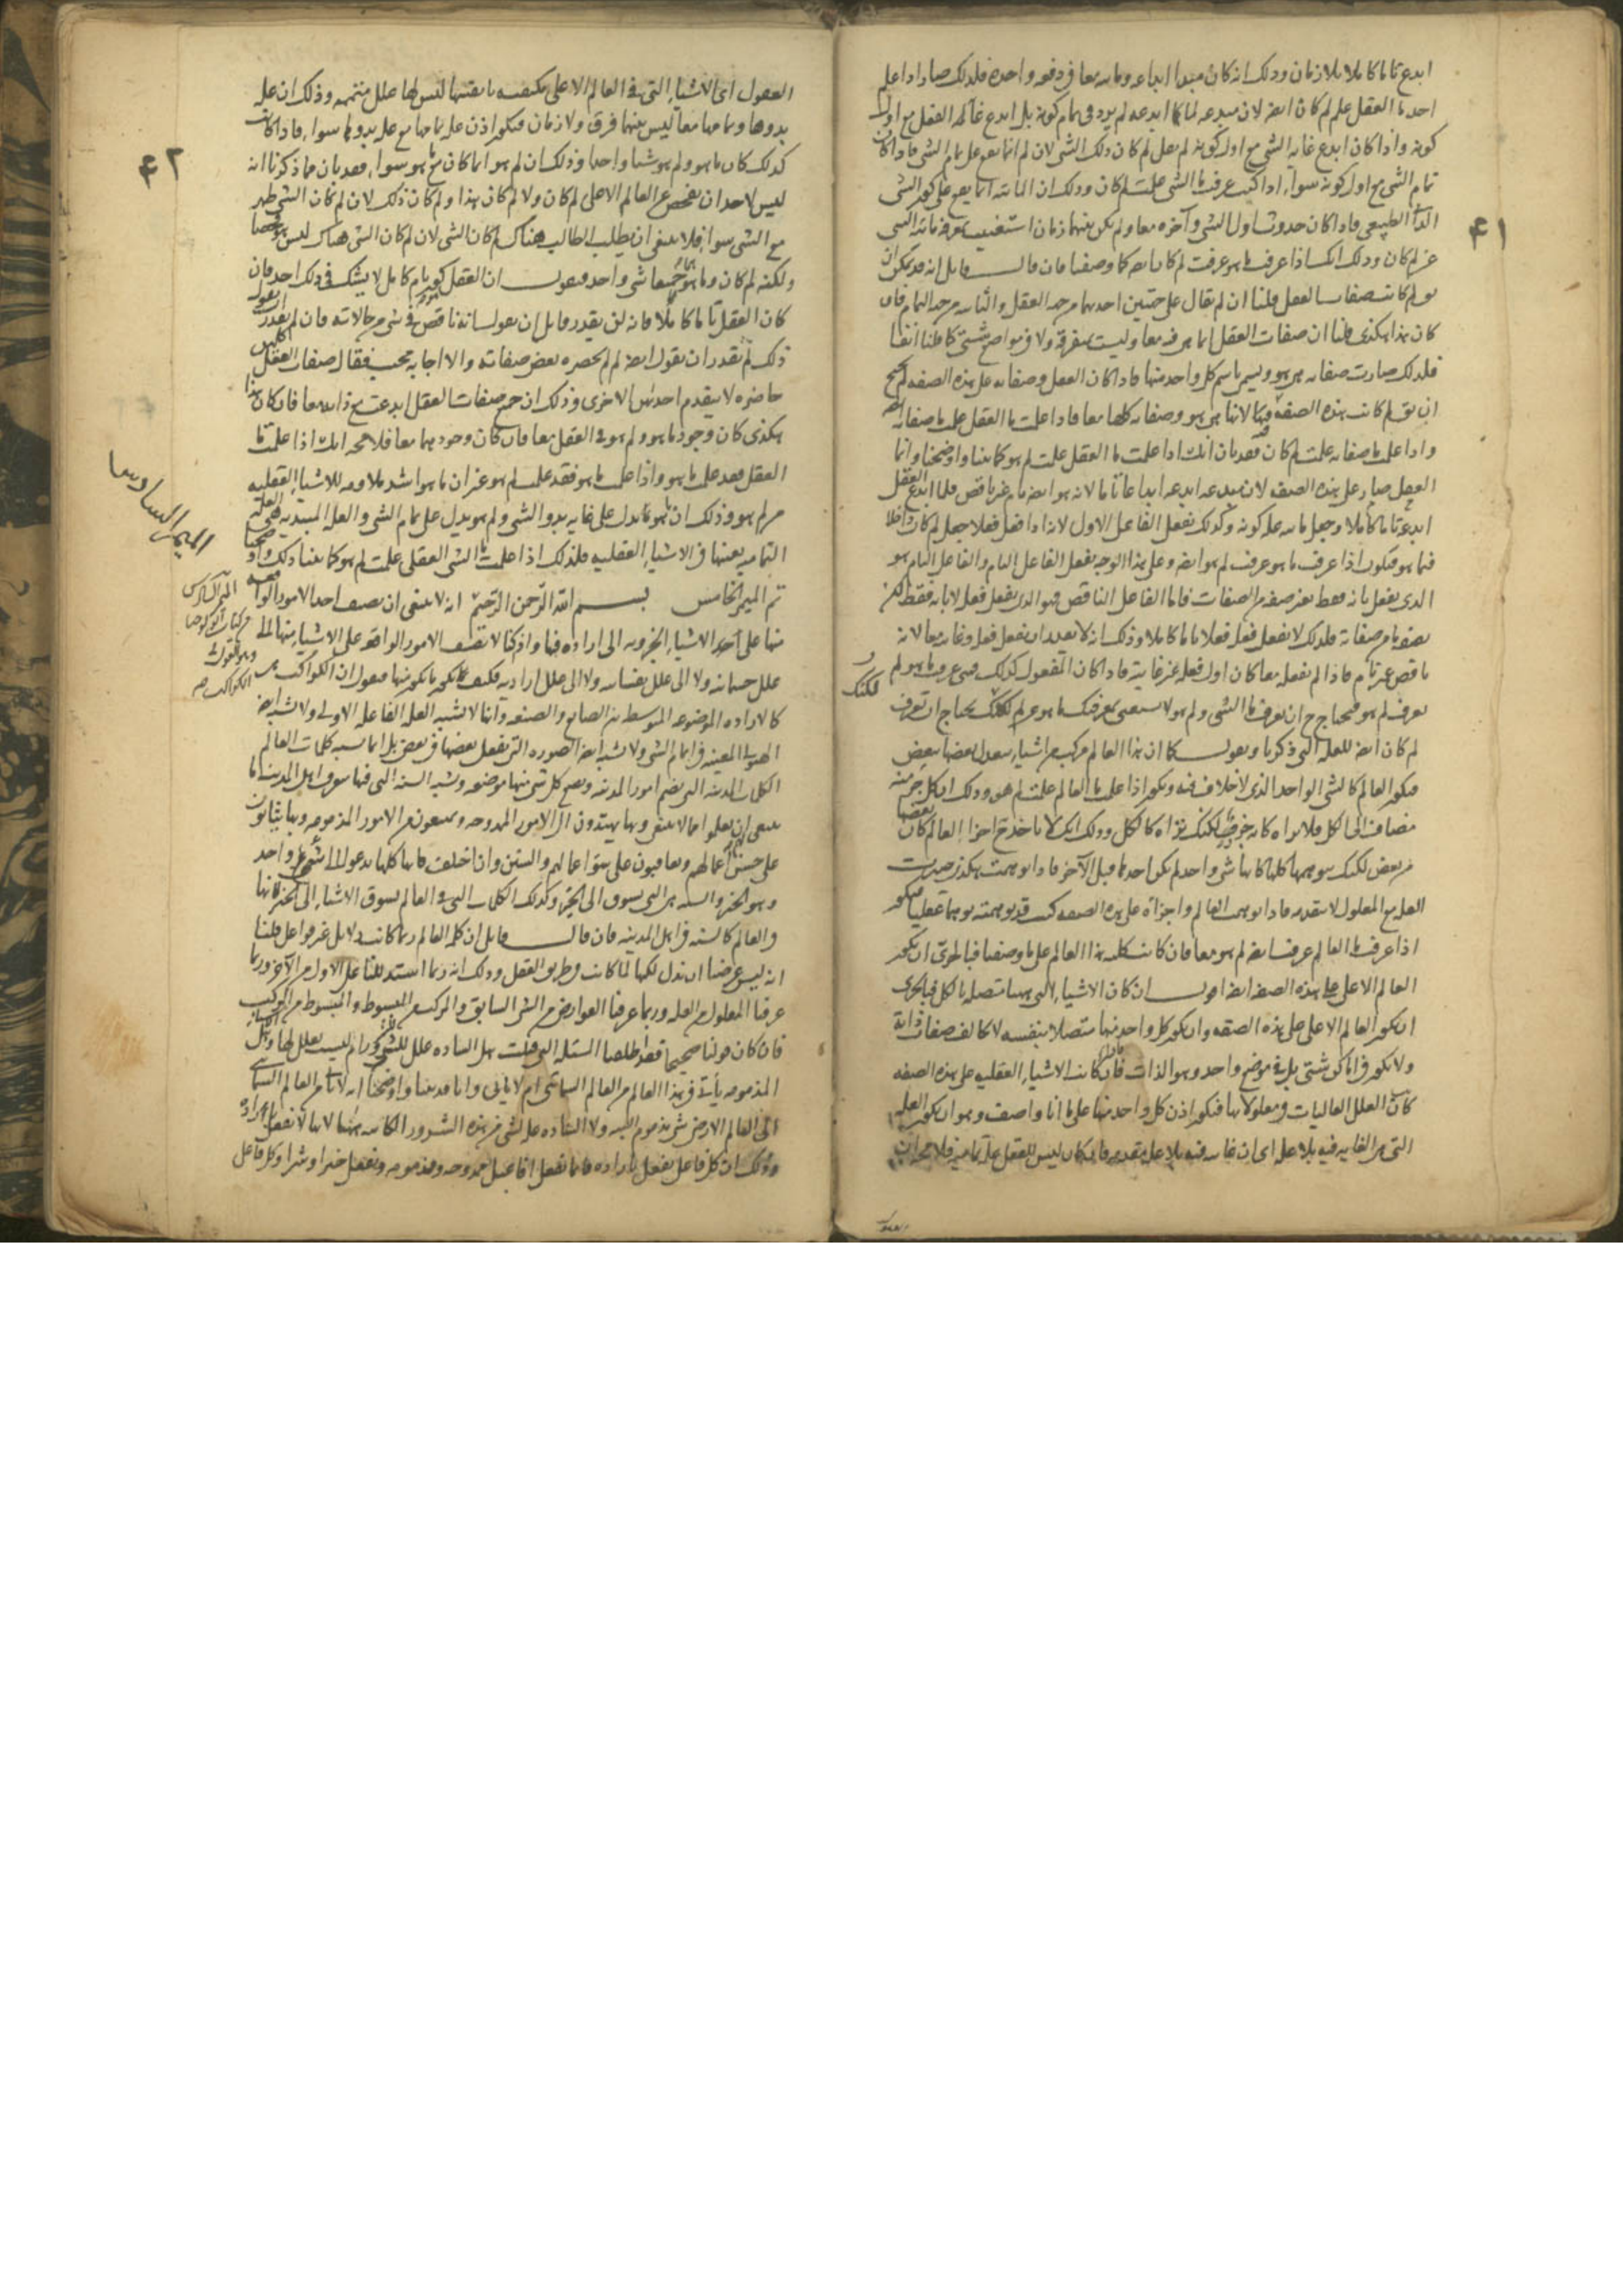 ابدع تاما كاملا بلا زمان وذلك انه كان مبدا ابداعه وما به معا فى دفعه واحده فلذلك صار اذا علم
احد ما العقل علم لم كان ايضا لان مبدعه لما ابدعه لم يرو فى تمام كونه بل ابدع غاية العقل مع اول
كونه واذا كان ابدع غاية الشى مع اول كونه لم يقل لم كان ذلك الشى لان لم انما يقع على تمام الشى فاذا كان
تمام الشى مع اول كونه سواء اذا كنت عرفت ما الشى علمت لم كان وذلك ان المائيه انما يقع على كون الشى
الطبيعى فاذا كان حدوث اول الشى وآخره معا ولم يكن بينهما زمان استغنيت بمعرفة مائية الشى
عن لم كان وذلك انك اذا عرفت ما هو عرفت لم كان ايضا كما وصفنا فان قال قايل انه قد يمكن ان
يق لم كانت صفات العقل قلنا ان لم يقال على جهتين احدهما من جهة العقل والثانيه من جهة التمام فان
كان هذا هكذى قلنا ان صفات العقل انما هى فيه معا وليست بمفرقه ولا فى مواضع شتى كما قلنا انفا
فلذلك صارت صفاته هى هو ويسمى باسم كل واحد منها فاذا كان العقل وصفاته على هذه الصفه لم يحتج
ان يق لم كانت هذه الصفه فيه لانها هى هو وصفاته كلها معا فاذا علمت ما العقل علمت ما صفاته ايضا
واذا علمت ما صفاته علمت لم كان فقد بان انك اذا علمت ما العقل علمت لم هو كما بينا واوضحنا وانما
العقل صار على هذه الصفه لان مبدعه ابدعه ابداعا تاما لانه هو ايضا تام غير ناقص فلما ابدع العقل
ابدعه تاما كاملا وجعل مائيته علة كونه وكذلك يفعل الفاعل الاول لانه اذا فعل فعلا جعل لم كان داخلا
فيما هو فيكون اذا عرفت ما هو عرفت لم هو ايضا وعلى هذا الوجه يفعل الفاعل التام والفاعل التام هو
الذى يفعل بانه فقط بغير صفه من الصفات فاما الفاعل الناقص فهو الذى يفعل فعله لا بانه فقط لكن
بصفة ما من صفاته فلذلك لا يفعل فعلا تاما كاملا وذلك انه لا يقدر ان يفعل فعله وغايته معا لانه
ناقص غير تام فاذا لم يفعله معا كان اول فعله غير غايته فاذا كان المفعول كذلك
لكنك
يعرف لم هو فيحتاج ح ان يعرف ما الشى ولم هو ولا يستغنى بمعرفتك ما هو عن لم لكنك يحتاج ان تعرف
لم كان ايضا للعله التى ذكرنا ونقول كما ان هذا العالم مركب من اشياء بعضها ببعض
فيكون العالم كالشى الواحد الذى لا خلاف فيه ويكون اذا علمت ما العالم علمت لم هو وذلك ان كل جزء منه
مضاف الى الكل فلا تراه كانه جزء لكنك تراه كالكل وذلك انك لا تاخذ ح اجزاء العالم كان بعضها
من بعض لكنك تتوهمها كلها كانها شى واحد لم يكن احدها قبل الآخر فاذا توهمت هكذى صيرت
العله مع المعلول لا تتقدمه فاذا توهمت العالم واجزاءه على هذه الصفه كنت قد توهمته توهما عقليا فيكون
اذا عرفت ما العالم عرفت ايضا لم هو معا فان كانت كلية هذا العالم على ما وصفنا فبالحرى ان يكون
العالم الاعلى على هذه الصفه ايضا اقول ان كان الاشياء التى ههنا متصله بالكل فبالحرى
ان يكون العالم الاعلى على هذه الصفه وان يكون كل واحد منها متصلا بنفسه لا تخالف صفاته ذاته
ولا يكون فى اماكن شتى بل فى موضع واحد وهو الذات فاذا كانت الاشياء العقليه على هذه الصفه
كانت العلل العاليات فى معلولاتها فيكون اذن كل واحد منها على ما انا واصف وهو ان يكون العله
التى هى الغايه فيه بلا عله اى ان غايته فيه بلا عله متقدمه فان كان ليس للعقل عله تماميه فلا محاله ان
العقول
٤١
العقول اى الاشياء التى فى العالم الاعلى مكتفيه بانفسها ليس لها علل متممه وذلك ان علة
بدوها وتمامها معا ليس بينهما فرق ولا زمان فيكون اذن علة تمامها مع علة بدوها سواء فاذا كانت
كذلك كان ما هو ولم هو شيئا واحدا وذلك ان لم هو انما كان مع ما هو سواء فقد بان مما ذكرنا انه
ليس لاحد ان يفحص عن العالم الاعلى لم كان ولا لم كان هذا ولم كان ذلك لان لم كان الشى ظهر
مع الشى سواء فلا ينبغى ان يطلب الطالب هناك لم كان الشى لان لم كان الشى هناك ليس هو فحصا
ولكنه لم كان وما هو هما جميعا شى واحد فنقول ان العقل يكون تام كامل لا يشك فى ذلك احد فان
كان العقل تاما كاملا فانه لن يقدر قايل ان يقول انه ناقص فى شى من حالاته فان لم يقدر ان يقول
ذلك لم يقدر ان يقول ايضا لم لم يحضره بعض صفاته والا اجابه مجيب فقال صفات العقل كلها
حاضره لا يتقدم احديهن الاخرى وذلك ان جميع صفات العقل ابدعت مع ذاته معا فان كان هذا
هكذى كان وجود ما هو ولم هو فى العقل معا فان كان وجودهما معا فلا محاله انك اذا علمت ما
العقل فقد علمت ما هو واذا علمت ما هو فقد علمت لم هو غير ان ما هو اشد ملاومه للاشياء العقليه
من لم هو وذلك ان ما هو يدل على غاية بدو الشى ولم هو يدل على تمام الشى والعله المبديه هى العله
التماميه بعينها فى الاشياء العقليه فلذلك اذا علمت ما الشى العقلى علمت لم هو كما بينا ذلك واوضحنا
تم الميمر الخامس بسم الله الرحمن الرحيم انه لا ينبغى ان يصف احد الامور الواقعه
منها على احد الاشياء الجزويه الى اراده فيها واذ كنا لا نصف الامور الواقعه على الاشياء منها الى
علل جسمانيه ولا الى علل نفسانيه ولا الى علل اراديه فكيف يكون ما يكون منها فنقول ان الكواكب هى
كالاداه الموضوعه المتوسطه بين الصانع والصنعه وانها لا تشبه العله الفاعله الاولى ولا تشبه ايضا
الهيولى المعينه فى اتمام الشى ولا تشبه ايضا الصوره التى يفعل بعضها فى بعض بل انما تشبه كلمات العالم
الكلمات المدنيه التى تضم امور المدينه وتضع كل شى منها موضعه وتشبه السنه التى فيها يعرف اهل المدينه ما
ينبغى ان يعملوا مما لا ينبغى وبها يهتدون الى الامور الممدوحه ويمتنعون من الامور المذمومه وبها يثابون
على حسن اعمالهم ويعاقبون على سوء اعمالهم والسنن وان اختلفت فانها كلها يدعوا الى شى واحد
وهو الخير والسنه هى التى تسوق الى الخير وكذلك الكلمات التى فى العالم تسوق الاشياء الى الخير لانها
فى العالم كالسنه فى اهل المدينه فان قال قايل ان كلمة العالم ربما كانت دلايل غير فواعل قلنا
انه ليس غرضها ان تدل لكنها لما كانت فى طريق العقل وذلك انه ربما استدللنا على الاول من الآخر وربما
عرفنا المعلول من العله وربما عرفنا العوارض من الشى السابق والمركب من المبسوط والمبسوط من المركب
فان كان قولنا صحيحا فقد اطلقنا المسئله التى قلت هل الساده علل للشرور ام ليست بعلل لها وهل الاشياء
المذمومه يأتى فى هذا العالم من العالم السمائى ام لا ياتى وانا قد بينا واوضحنا انه لا يأتى من العالم السمائى
الى العالم الارضى شى مذموم البته ولا الساده علة لشى من هذه الشرور الكاينه ههنا لانها لا تفعل باراده
وذلك ان كل فاعل يفعل باراده فانما يفعل افاعيل ممدوحه ومذمومه ويفعل خيرا وشرا وكل فاعل
٤٢
الميمر السادس
الميمر السادس
من كتاب اثولوجيا
وهو القول فى
الكواكب